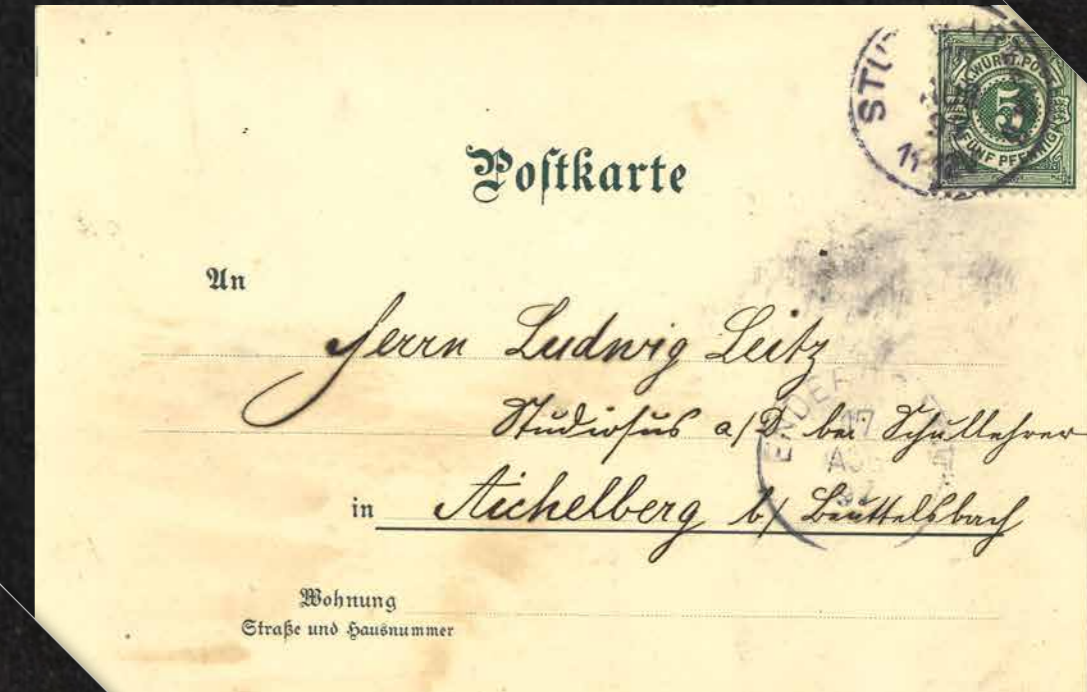 K. WÜRTT. POST
5
FÜNF PFENNIG
Postkarte
An
Herrn Ludwig Leitz
Studiosus a/D bei Schullehrer
in Aichelberg b/ Beuttelsbach
17
AUG
Wohnung
Straße und Hausnummer